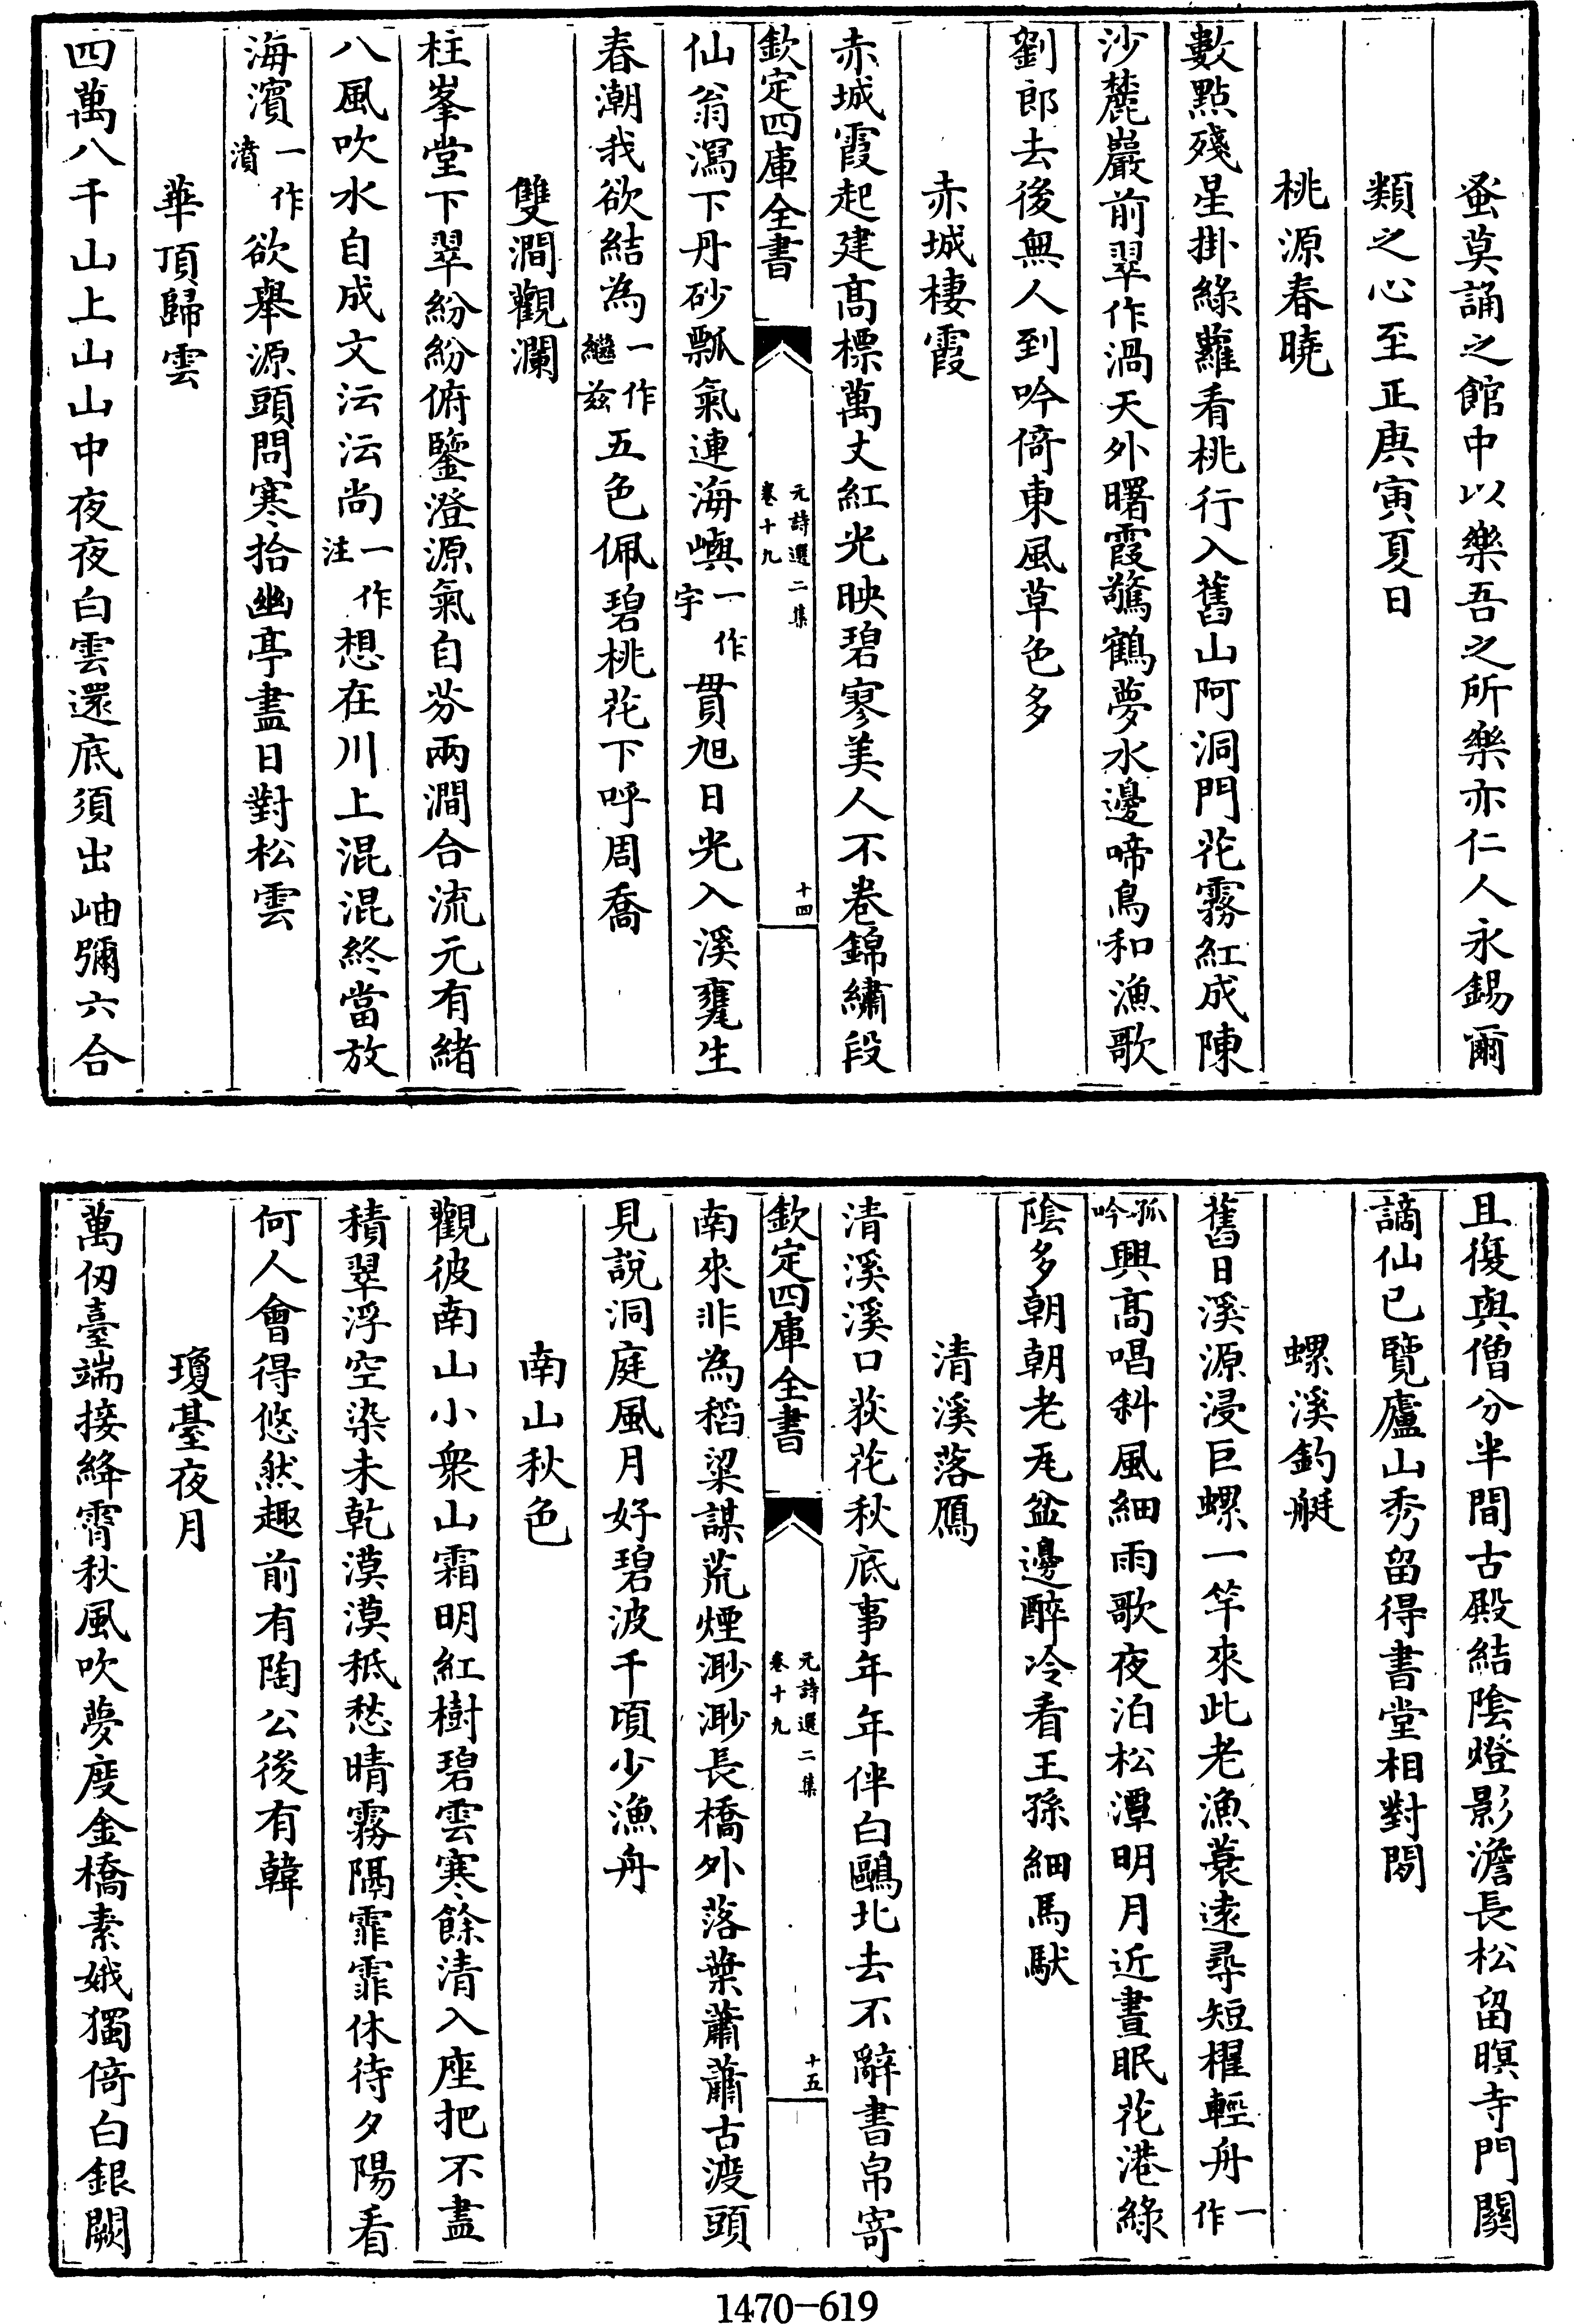 蚤莫誦之館中以樂吾之所樂亦仁人永錫爾
類之心至正庚寅夏日
桃源春曉
數點殘星掛綠蘿看桃行入舊山阿洞門花霧紅成陳
沙麓巖前翠作渦天外曙霞驚鶴夢水邊啼鳥和漁歌
劉郎去後無人到吟倚東風草色多
赤城棲霞
赤城霞起建高標萬丈紅光映碧寥美人不卷錦繡段
欽定四庫全書
元詩選二集
卷十九
十四
仙翁瀉下丹砂瓢氣連海嶼一作宇貫旭日光入溪甕生
春潮我欲結為一作繼兹五色佩碧桃花下呼周喬
雙澗觀瀾
柱峯堂下翠紛紛俯鑒澄源氣自芬兩澗合流元有緒
八風吹水自成文沄沄尚一作注想在川上混混終當放
海濱一作濆欲舉源頭問寒拾幽亭盡日對松雲
華頂歸雲
四萬八千山上山山中夜夜白雲還底須出岫彌六合
且復與僧分半間古殿結陰燈影澹長松留暝寺門關
謫仙已覽廬山秀留得書堂相對閒
螺溪釣艇
舊日溪源浸巨螺一竿來此老漁蓑遠尋短櫂輕舟一作
孤吟興高唱斜風細雨歌夜泊松潭明月近晝眠花港綠
陰多朝朝老瓦盆邊醉冷看王孫細馬馱
清溪落鴈
清溪溪口荻花秋底事年年伴白鷗北去不辭書帛寄
欽定四庫全書
元詩選二集
卷十九
十五
南來非為稻粱謀荒煙渺渺長橋外落葉蕭蕭古渡頭
見說洞庭風月好碧波千頃少漁舟
南山秋色
觀彼南山小衆山霜明紅樹碧雲寒餘清入座把不盡
積翠浮空染未乾漠漠秪愁晴霧隔霏霏休待夕陽看
何人會得悠然趣前有陶公後有韓
瓊臺夜月
萬仞臺端接絳霄秋風吹夢度金橋素娥獨倚白銀闕
1470—619